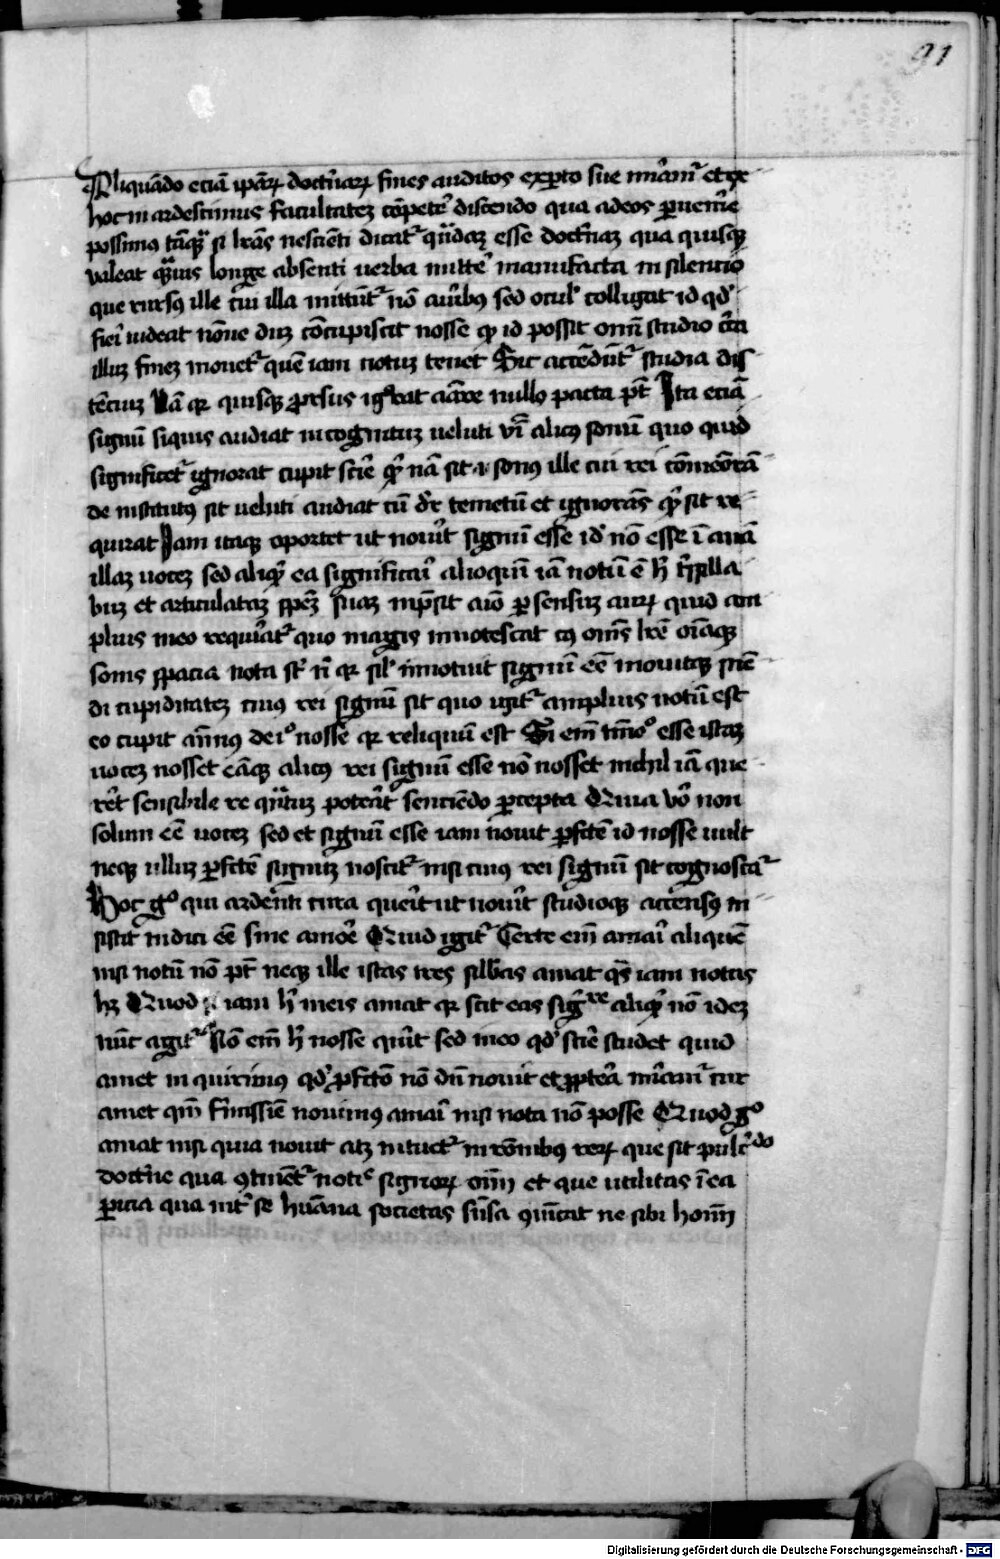 91
Aliquãdo eciã ip̃aꝝ doctⁱnaꝝ fines auditos exp̱to sue intⁱamꝰ et ex
hoc in ardescimus facultateʒ cõpet̾e discendo qua ad eos p̱ueniɾe
possimꝰ tãqᷓ si lr̃as nescienti dicat᷑ qᷓndaʒ esse doctⁱnaʒ qua quisqʒ
valeat qᷓuis longe absenti uerba mitt̾e manufacta in silencio
que rursꝰ ille cui illa mittũt᷑ nõ aurⁱbꝰ sed ocul᷑ colligat id qd᷑
fieri uideat nõne duʒ cõcupiscit nosse qͦ id possit om̃i studio circa
illuʒ fineʒ mouet᷑ quẽ iam notuʒ tenet Sic accẽdũt᷑ studia dis
cẽciuʒ Nã qͥ quisqʒ ꝓrsus ignorat amare nullo pacto pt̃ Ita eciã
signũ siquis audiat incognituʒ ueluti vⁱ alicꝰ sonũ quo quid
significet᷑ ignorat cupit scire qd᷑nã sit .i. sonꝰ ille cui rei cõmeorã
de institutꝰ sit ueluti audiat cũ dr̃ temetũ et ignorãs qd᷑ sit re
quirat Iam itaqʒ oportet ut nouⁱt signũ esse id ẽ nõ esse ĩanẽ
illaʒ uoceʒ sed aliqd᷑ ea significari alioquin iã notũ ẽ hͦ trisilla
buʒ et articulataʒ sp̃eʒ suaʒ imp̃ssit aĩo p̱ sensuʒ auriũ quid am
plius in eo requirat᷑ quo magis innotescat cꝰ om̃s lr̃e oĩaqʒ
soni spacia nota st̃ nⁱ qͥ sil᷑ innotuit signũ eẽ mouitqʒ sciẽ
di cupiditateʒ cuius rei signũ sit quo igit᷑ amplius notũ est
eo cupit animꝰ de iͦ nosse qͥ reliquũ est Si em̃ tm̃oͦ esse istaʒ
uoceʒ nosset eãqʒ alicꝰ rei signũ esse nõ nosset nichil iã que
ret sensibile re qᷓntuʒ poterat sentiẽdo p̱cepta Quia vͦo non
solum eẽ uoceʒ sed et signũ esse iam nouit p̱fcẽ id nosse uult
neqʒ ulluʒ p̱fcẽ signuʒ noscit᷑ nisi cuius rei signũ sit cognoscat᷑
Hoc gͦ qui ardenti cura querit ut nouⁱt studioqʒ accẽsꝰ in
sistit nũ dici eẽ sine amore Quid igit᷑ Certe em̃ amari aliquẽ
nisi notũ nõ pt̃ neqʒ ille istas tres sillˡbas amat qᷓs iam notas
hʒ Quod si iam hͦ in eis amat qͥ scit eas sigre aliqd᷑ nõ ideʒ
nũc agit᷑ Nõ em̃ hͦ nosse querit sed in eo qd᷑ scire studet quid
amet inquirimus qd᷑ p̱fcõ nõ dũ nouit et ꝓpterea miramur cur
amet qm̃ firmissime nouimꝰ amari nisi nota nõ posse Quid gͦ
amat nisi quia nouit atqʒ intuet᷑ in rõnibꝰ reꝝ que sit pulcⁱtudo
doctⁱne qua ꝯtinẽt᷑ notic̾ signoꝝ oĩm et que utilitas ĩ ea
p̱icia qua int᷑ se hũana societas sẽsa ꝯmũicat ne sibi homiñ